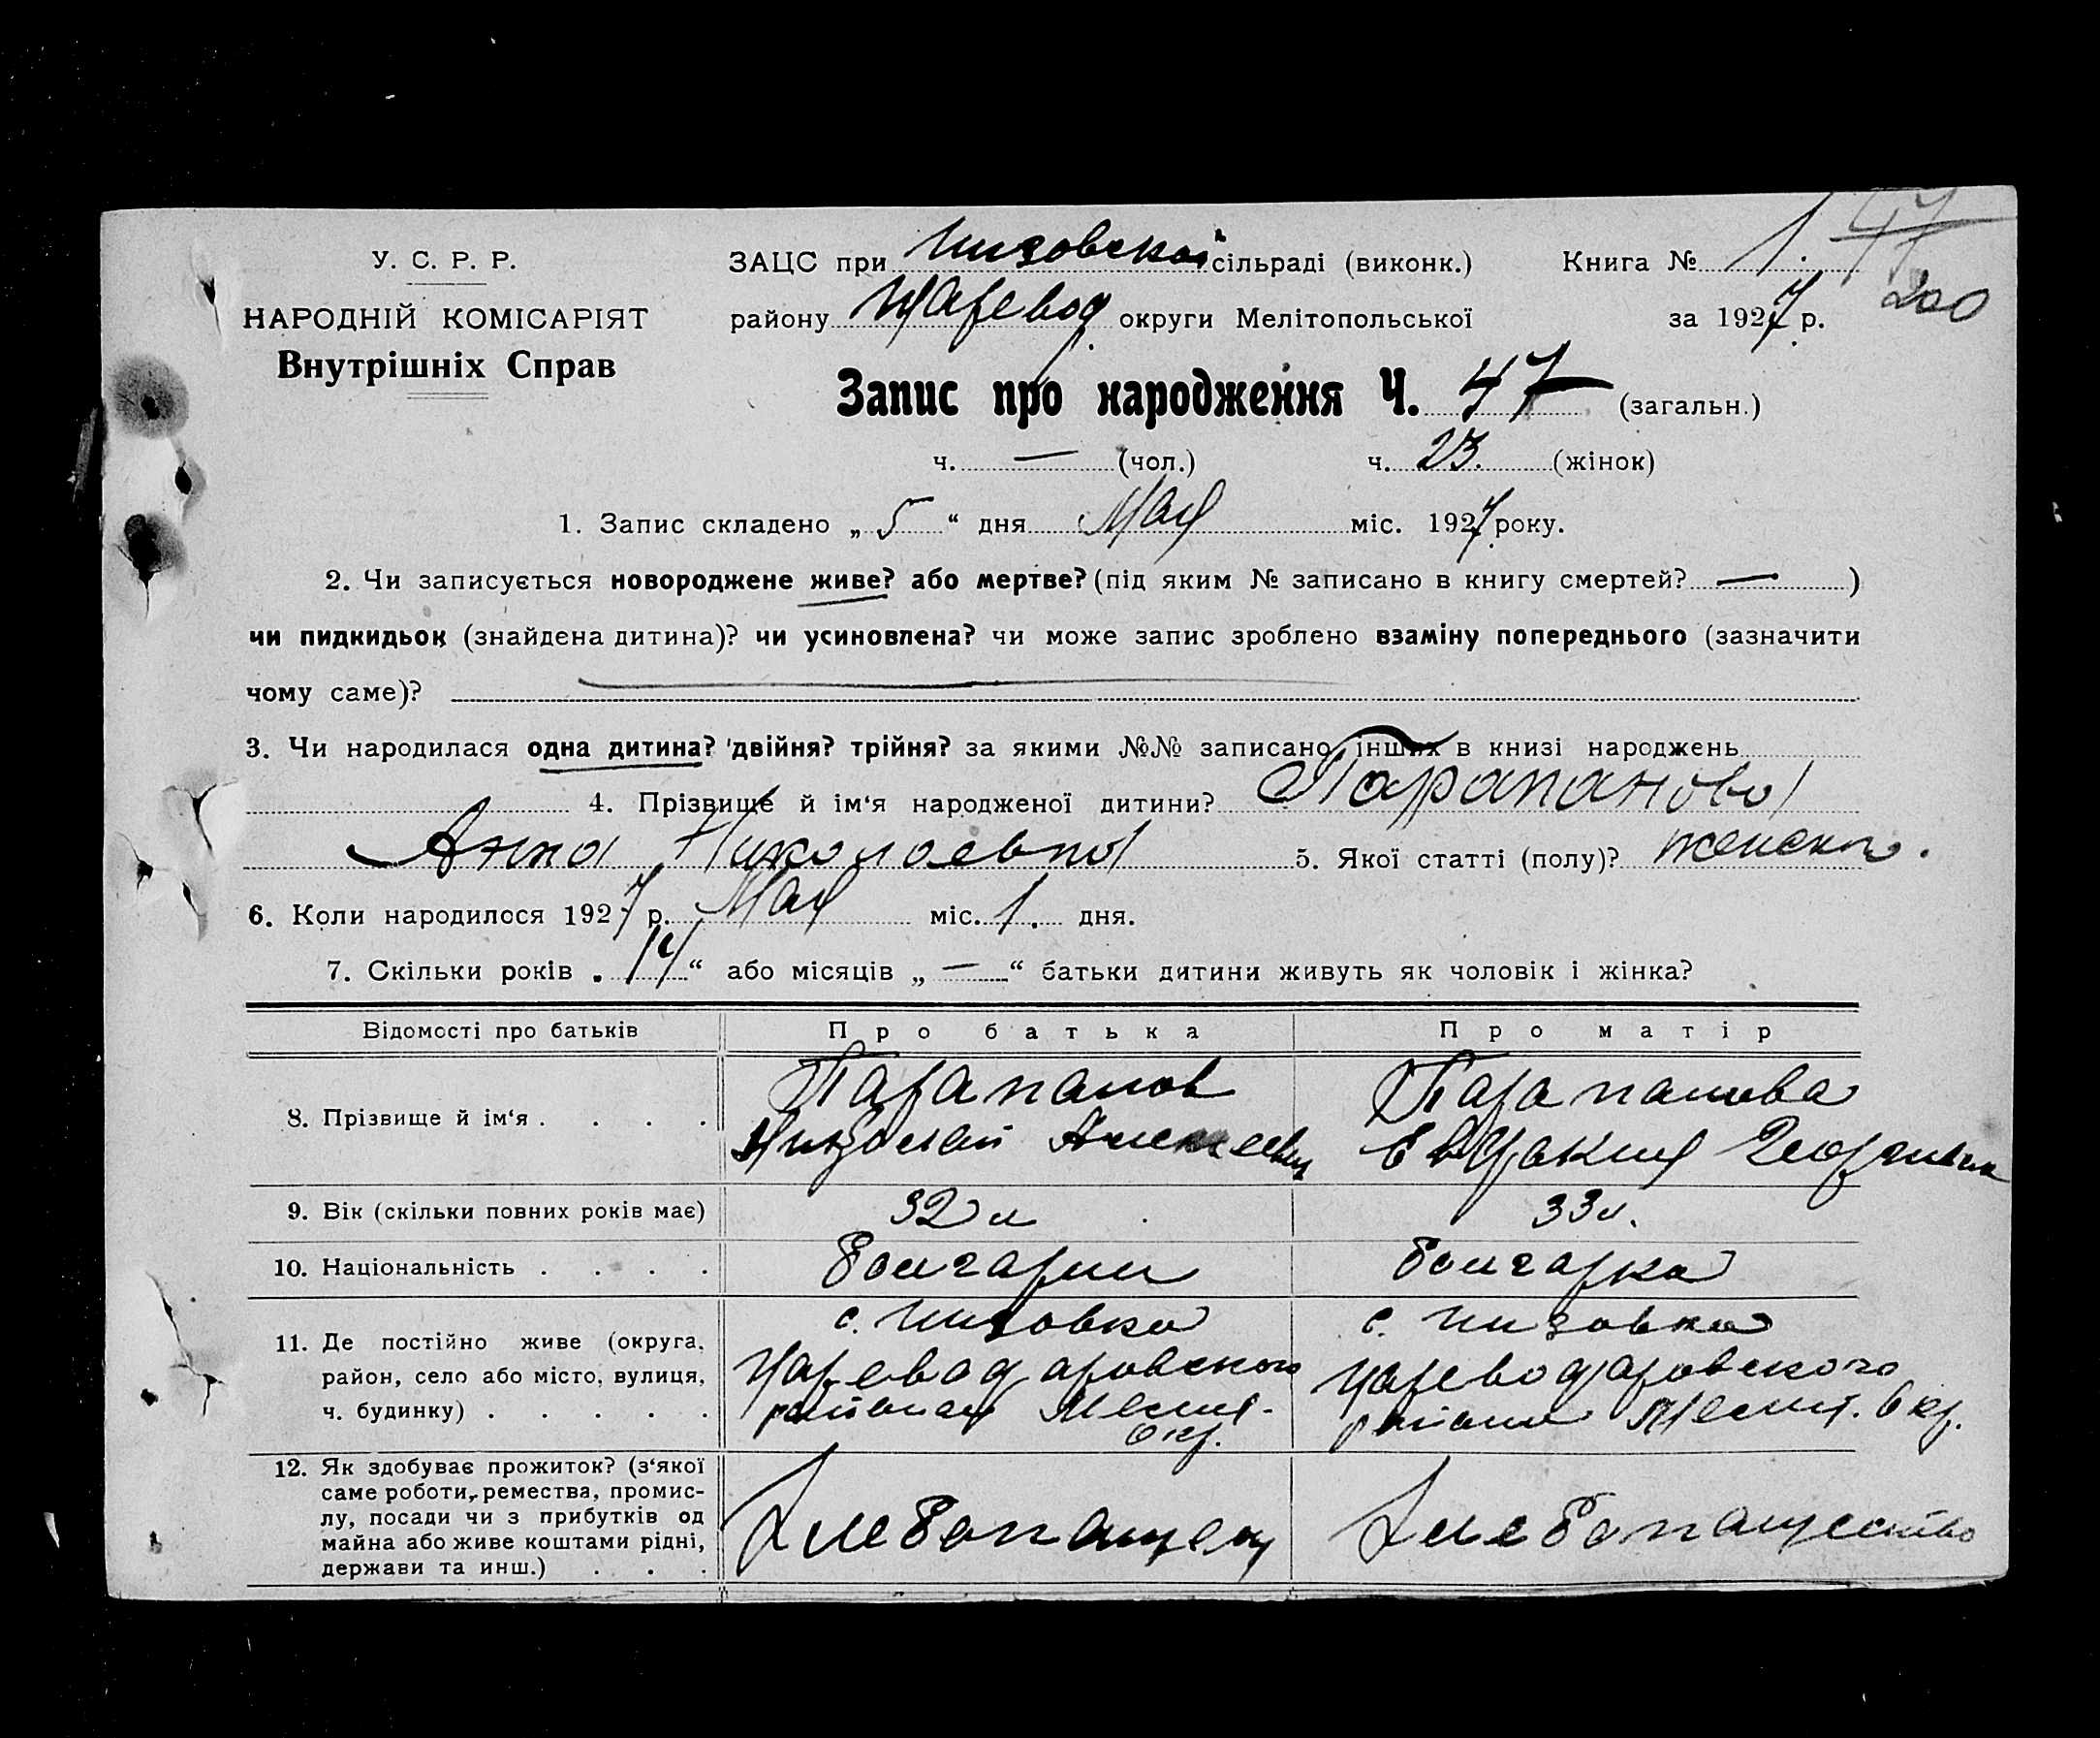 У. С. Р. Р.
НАРОДНІЙ КОМІСАРІЯТ
Внутрішніх Справ
ЗАЦС при Низовской сільраді (виконк.) Книга № 1. 47
району Царевод. округи Мелітопольської за 1927 р. 200
Запис про народження Ч. 47 (загальн.)
ч. — (чол.) ч. 23. (жінок)
1. Запис складено „ 5 “ дня Мая міс. 1927 року.
2. Чи записується новороджене живе? або мертве? (під яким № записано в книгу смертей? — )
чи пидкидьок (знайдена дитина)? чи усиновлена? чи може запис зроблено взаміну попереднього (зазначити
чому саме)?
3. Чи народилася одна дитина? двійня? трійня? за якими №№ записано інших в книзі народжень
4. Прізвище й ім‘я народженої дитини? Парапанова
Анна Николаевна 5. Якої статті (полу)? женски.
6. Коли народилося 1927 р. Мая міс. 1. дня.
7. Скільки років „ 14 “ або місяців „ — “ батьки дитини живуть як чоловік і жінка?
Відомості про батьків Про батька Про матір
8. Прізвище й ім‘я . . . .
Парапанов
Николай Алексеевич
Парапанова
Евдокия Георгиевна
9. Вік (скільки повних років має) 32 л 33 л.
10. Національність . . . . болгарин болгарка
11. Де постійно живе (округа,
район, село або місто, вулиця,
ч. будинку) . . . . .
с. Низовка
Цареводаровского
района Мелит.
Окр.
с. Низовка
Цареводаровского
района Мелит. Окр.
12. Як здобуває прожиток? (з‘якої
саме роботи, ремества, промис-
лу, посади чи з прибутків од
майна або живе коштами рідні,
держави та инш.) . . .
Хлебопашец
Хлебопашество